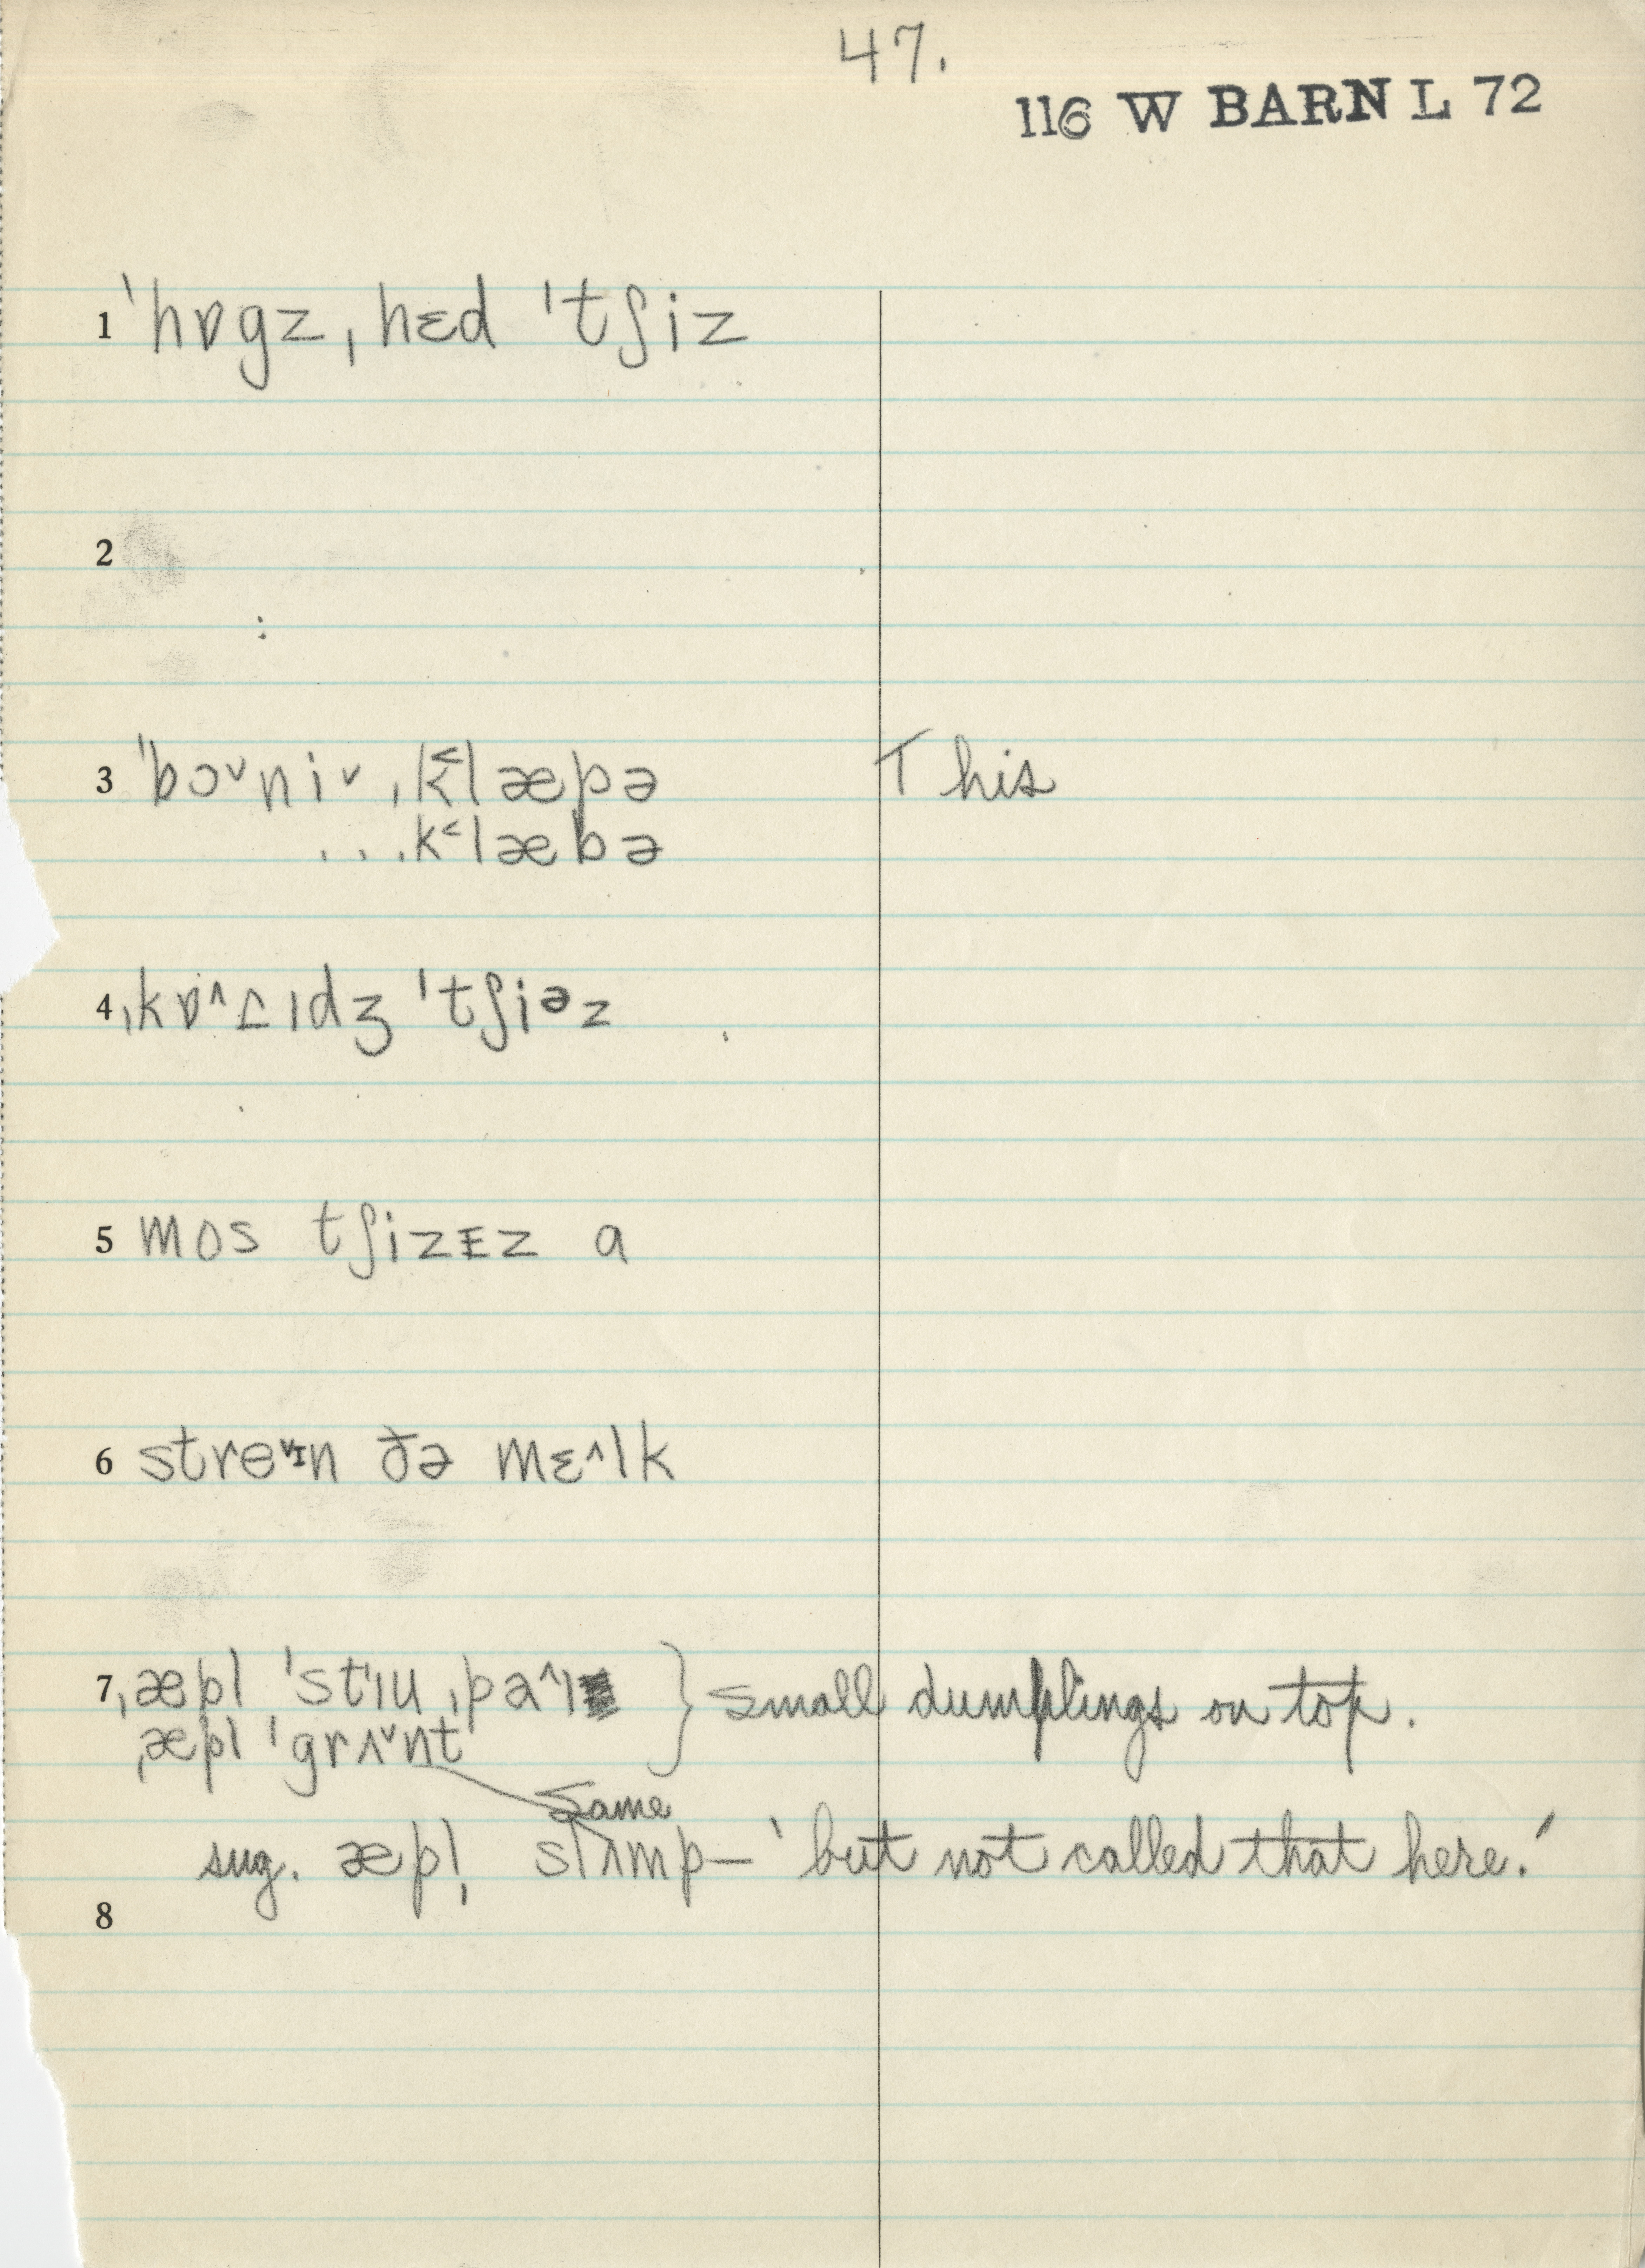 47.
116 W BARN L 72
1 ˈhɒgz ˌhɛd ˈtʃiz
2
3 ˈbɔ˅ni˅ ˌk˂læpə This
...k˂læbə
4 ˌkɒ˄ɾɪdʒ ˈtʃiəz
5 mos tʃizɪz a
6 stre˅ɪn ðə mɛ˄lk
7 ˌæpl ˈstɪu ˌpa˄ɪ } small dumplings on top.
ˌæpl ˈgrʌ˅nt
same
sug. æpl̩ slʌmp — 'but not called that here.'
8